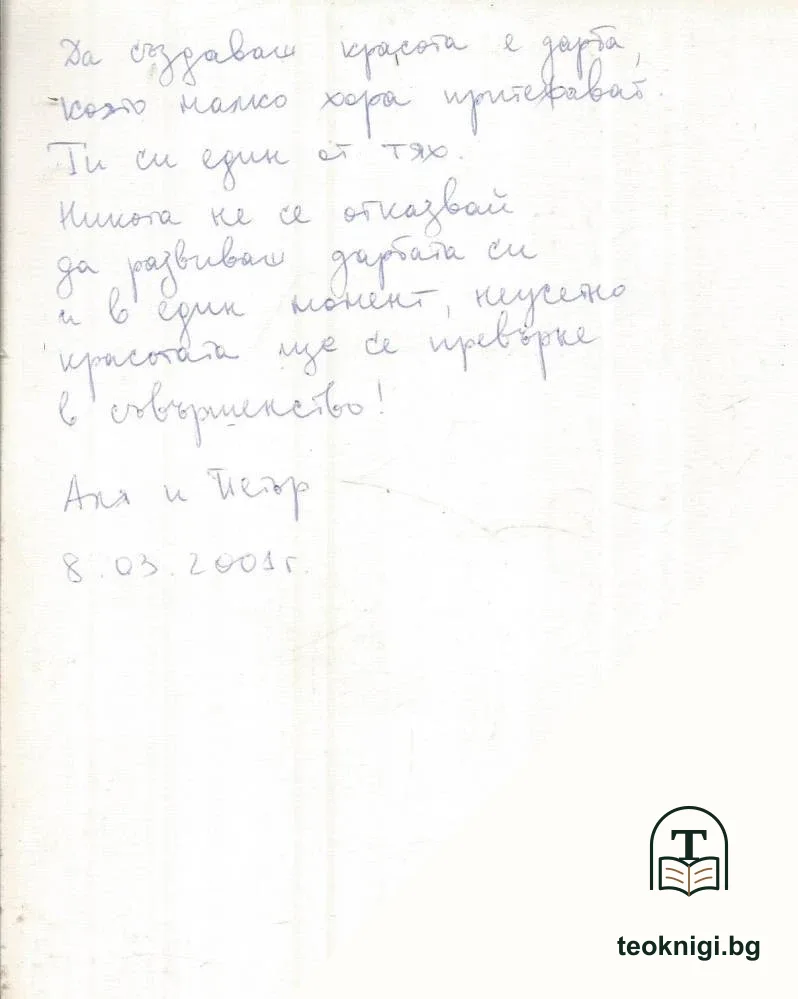 Да създаваш красота е дарба,
която малко хора притежават.
Ти си един от тях.
Никога не се отказвай
да развиваш дарбата си
и в един момент, неусетно
красотата ще се превърне
в съвършенство!
Аня и Петър
8.03.2001г.
T
teoknigi.bg